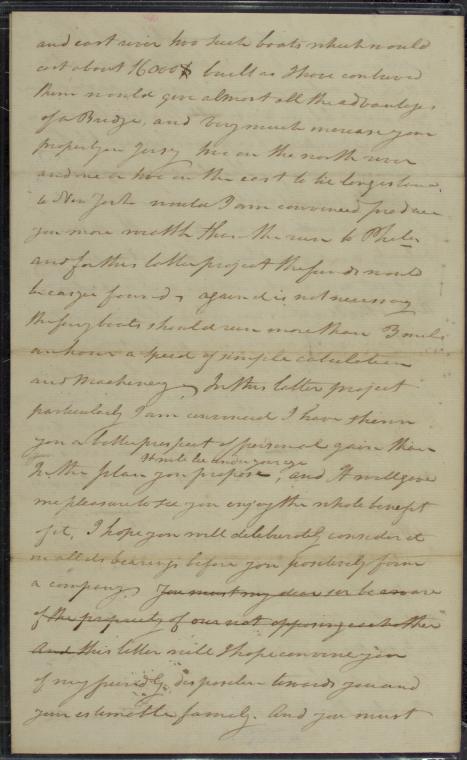 and east river two such boats which would
cost about 16000$ built as I have contrived
them would give almost all the advantages
of a Bridge, and very much increase your
property in Jersey two on the north river
and one or two on the east to
to New York would I am convinced produce
you more wealth than the run to Phila
and for this latter project the funds would
be easier found, again it is not necessary
the ferry boats should run more than 3 miles
an hour a speed of simple calculation
and Machinery, In this latter project
particularly I am convinced I have shewn
you a better prospect of personal gain than
It will be under your eye
In the plan you propose, and It will give
me pleasure to see you enjoy the whole benefit
of it, I hope you will deliberately consider it
in all its bearings before you positively form
a company, you must my dear sir be aware
of the propriety of our not opposing each other
And this letter will I hope convince you
of my friendly disposition towards you and
your estimable family. And you must